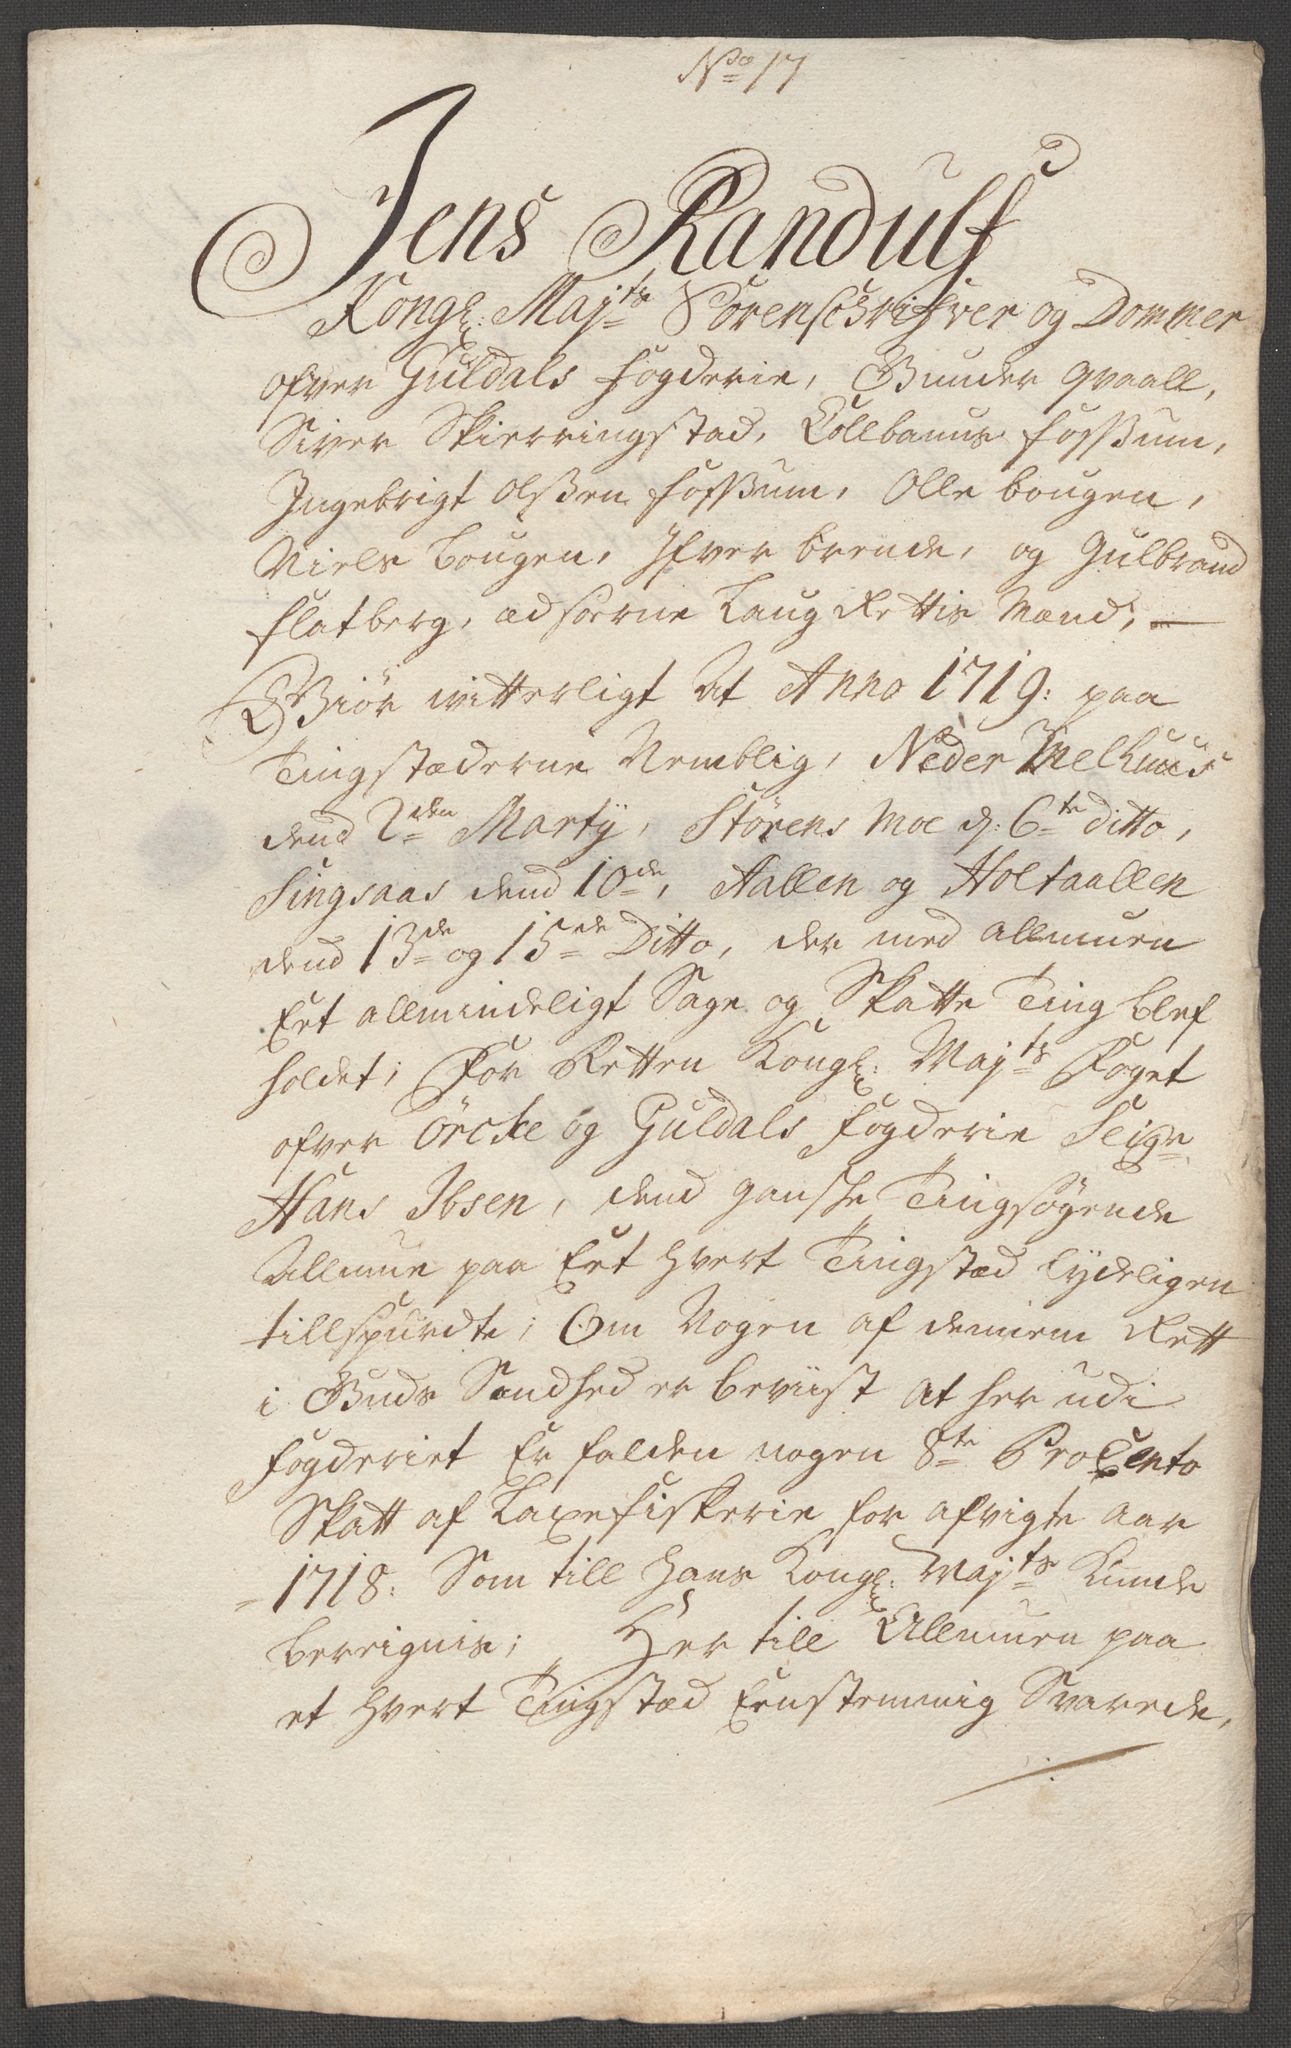 No 17
Jens Randulf
Kongl: Majts Sorenschrifver og Dommer
ofver Guldals fogderie, Gunder Qvaall,
Siver Skierringstad, Collbanus fosßum,
Ingebrigt Olßen fosßum, Olle bougen,
Niels bougen, Ifver brende, og Gulbrand
flatberg, Edsorne Laug Rettis Mænd, —
Giör witterligt At Anno 1719: paa
Tingstæderne Nemblig, Neder Melhuus
dend 2den Martij, Störens Moe d: 6te ditto,
Singsaas dend 10de, Aallen og Holtaallen
dend 13de og 15de Ditto, der med allmuen
Eet allmindeligt Sage og Skatte Ting blef
holdet; For Retten Kongl: Majts Foget
ofver Örcke og Guldals fogderie Seigr
Hans Ibsen, dend gansche Tingsøgende
Allmue paa Eet hvert Tingstæd lydeligen
tillspurdte; Om Nogen af dennem Rett
i Guds Sandhed er beviist at her udi
fogderiet Er falden nogen 8te ProCento
Skatt af Laxefiskerie for afvigte Aar
1718: Som till Hans Kongl: Majts Kunde
berreignis; Her till Allmuen paa
et hvert Tingstæd Eenstemmig Svarede,